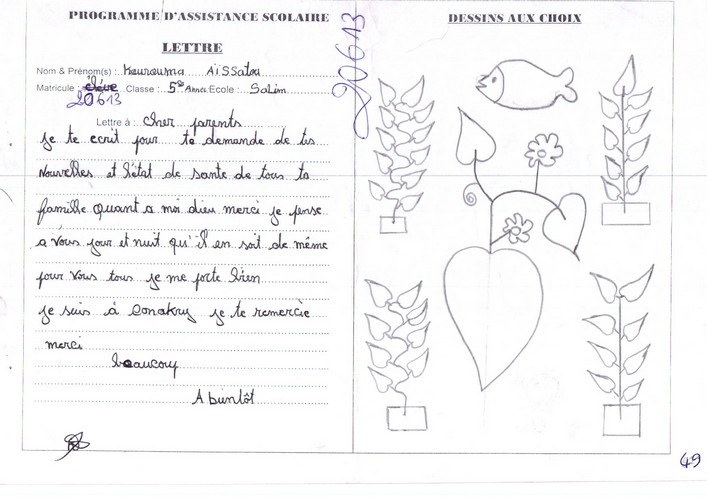 PROGRAMME D'ASSISTANCE SCOLAIRE
LETTRE
Nom & Prénom(s) : Kourouma Aïssatou
Matricule : élève Classe : 5e Année Ecole : Salim
20613
Lettre à : Cher parents
Je te ecrit pour te demande de tes
Nouvelles et l'état de sante de tous ta
famille Quant a moi dieu merci je pense
a Vous jour et nuit qu'il en soit de même
pour Vous tous je me porte bien
je suis à Conakry je te remercie
merci
beaucoup
A bientôt
20613
DESSINS AUX CHOIX
49